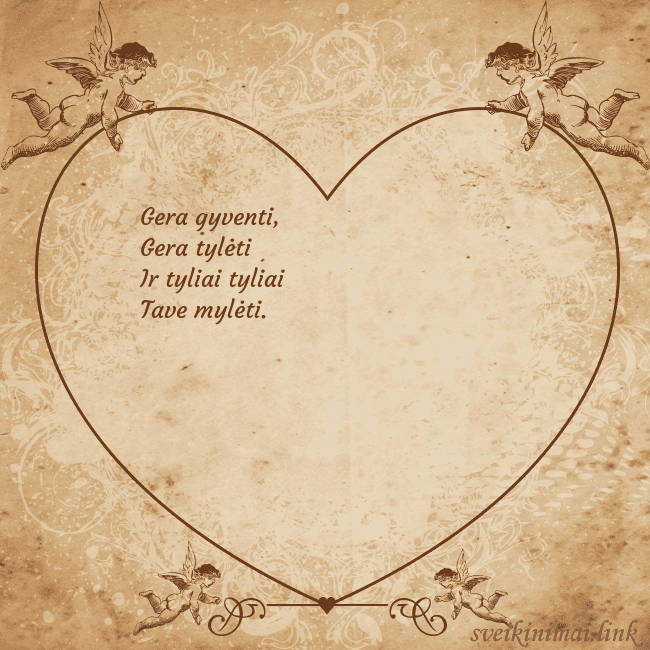 Gera gyventi,
Gera tylėti
Ir tyliai tyliai
Tave mylėti.
sveikinimai.link